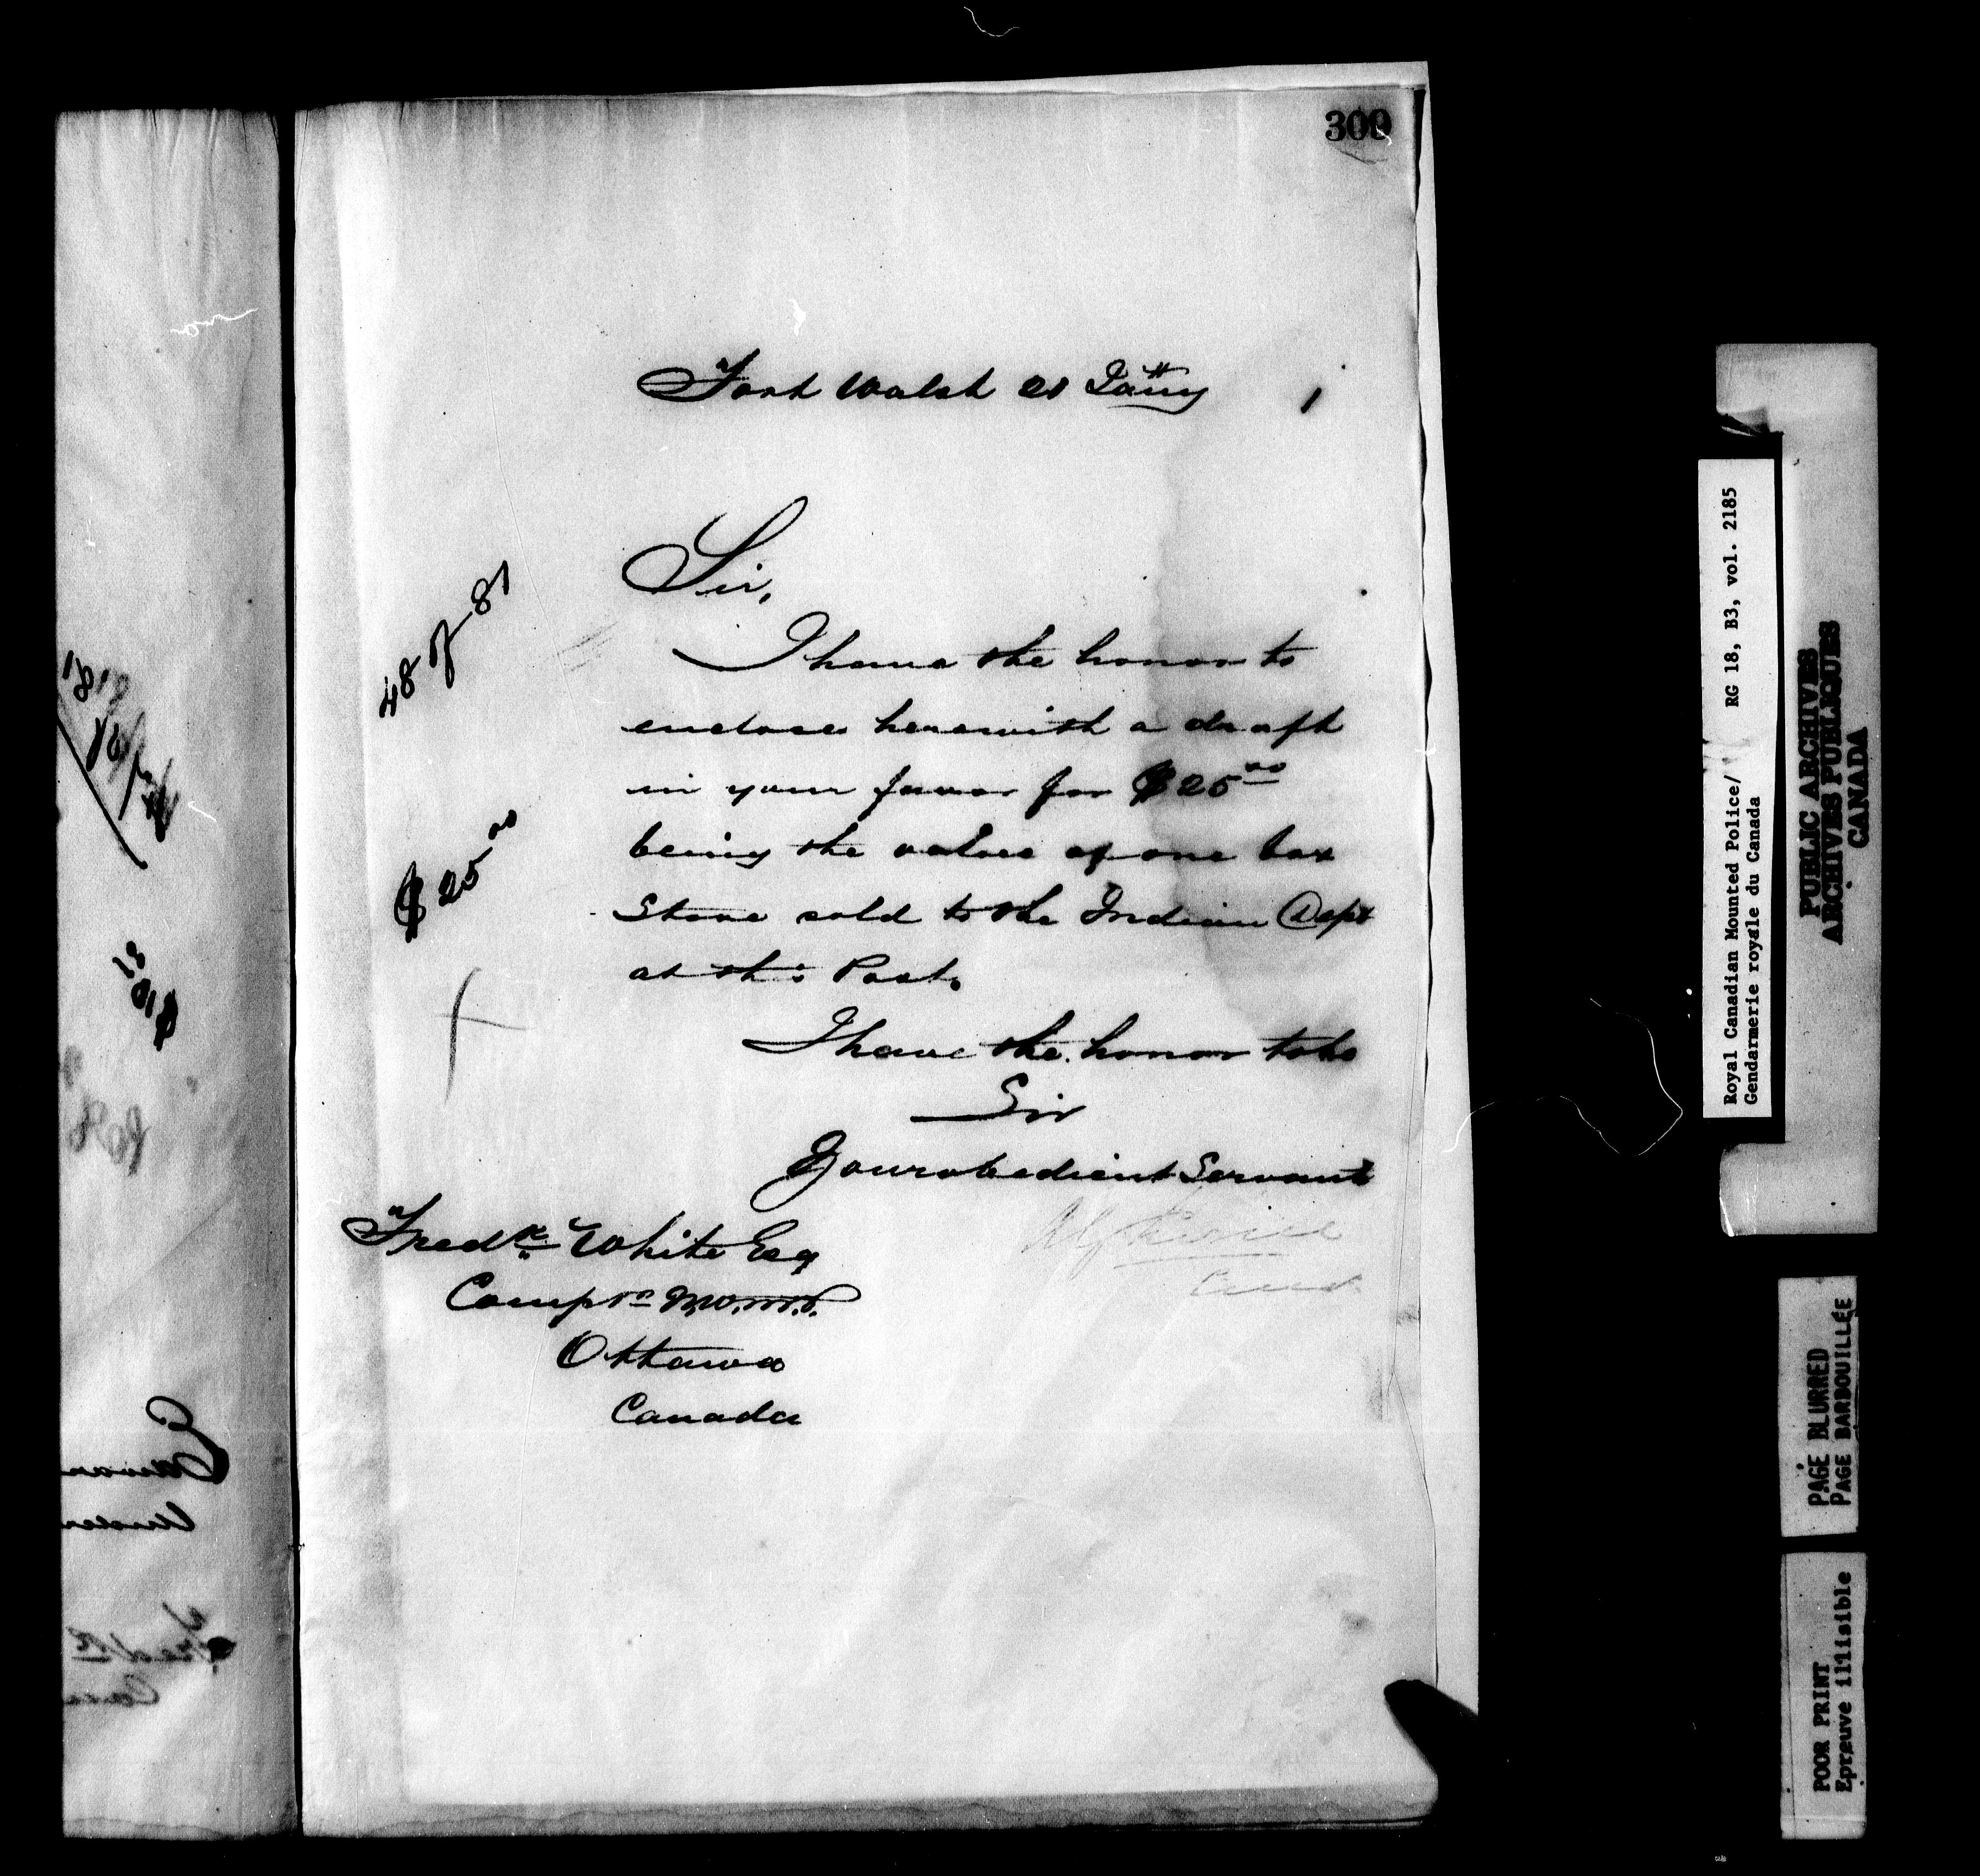 300
Fort Walsh 21 Jany 1
48 of 81
Sir,
I have the honor to
enclose herewith a draft
in your favor for $25 00
$25 00
being the value of one box
Stove sold to the Indian Dept
at this Post.
I have the honor to be
Sir
Your obedient Servant
Fredk White Esq
Compr N.W.M.P.
Ottawa
Canada
Royal Canadian Mounted Police/ RG 18, B3, vol. 2185
Gendarmerie royale du Canada
PUBLIC ARCHIVES
ARCHIVES PUBLIQUES
CANADA
PAGE BLURRED
PAGE BARBOUILLÉE
POOR PRINT
Epreuve illisible